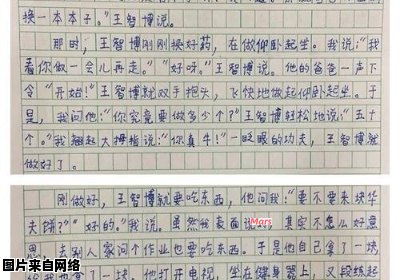 换一本本子。”王智博说。
那时，王智博刚刚换好药，在做仰卧起坐。我说：“我
看你做一会儿再走。”“好呀。”王智博说。他的爸爸一声下
令“开始！”王智博就双手抱头，飞快地做起仰卧起坐。于
是，我问他：“你究竟要做多少个？”王智博轻松地说：“五十
个。”我翘起大拇指说：“你真牛！”一眨眼的功夫，王智博就
做好了。
刚做好，王智博就要吃东西，他问我：“要不要来块华
夫饼？”“好的。”我说。虽然我表面说好，其实不怎么好意
Mars
思，去别人家问个作业也要吃东西。于是他自己拿了一块，
了一块。他打开电视，坐在健身器上，又
图片来自网络